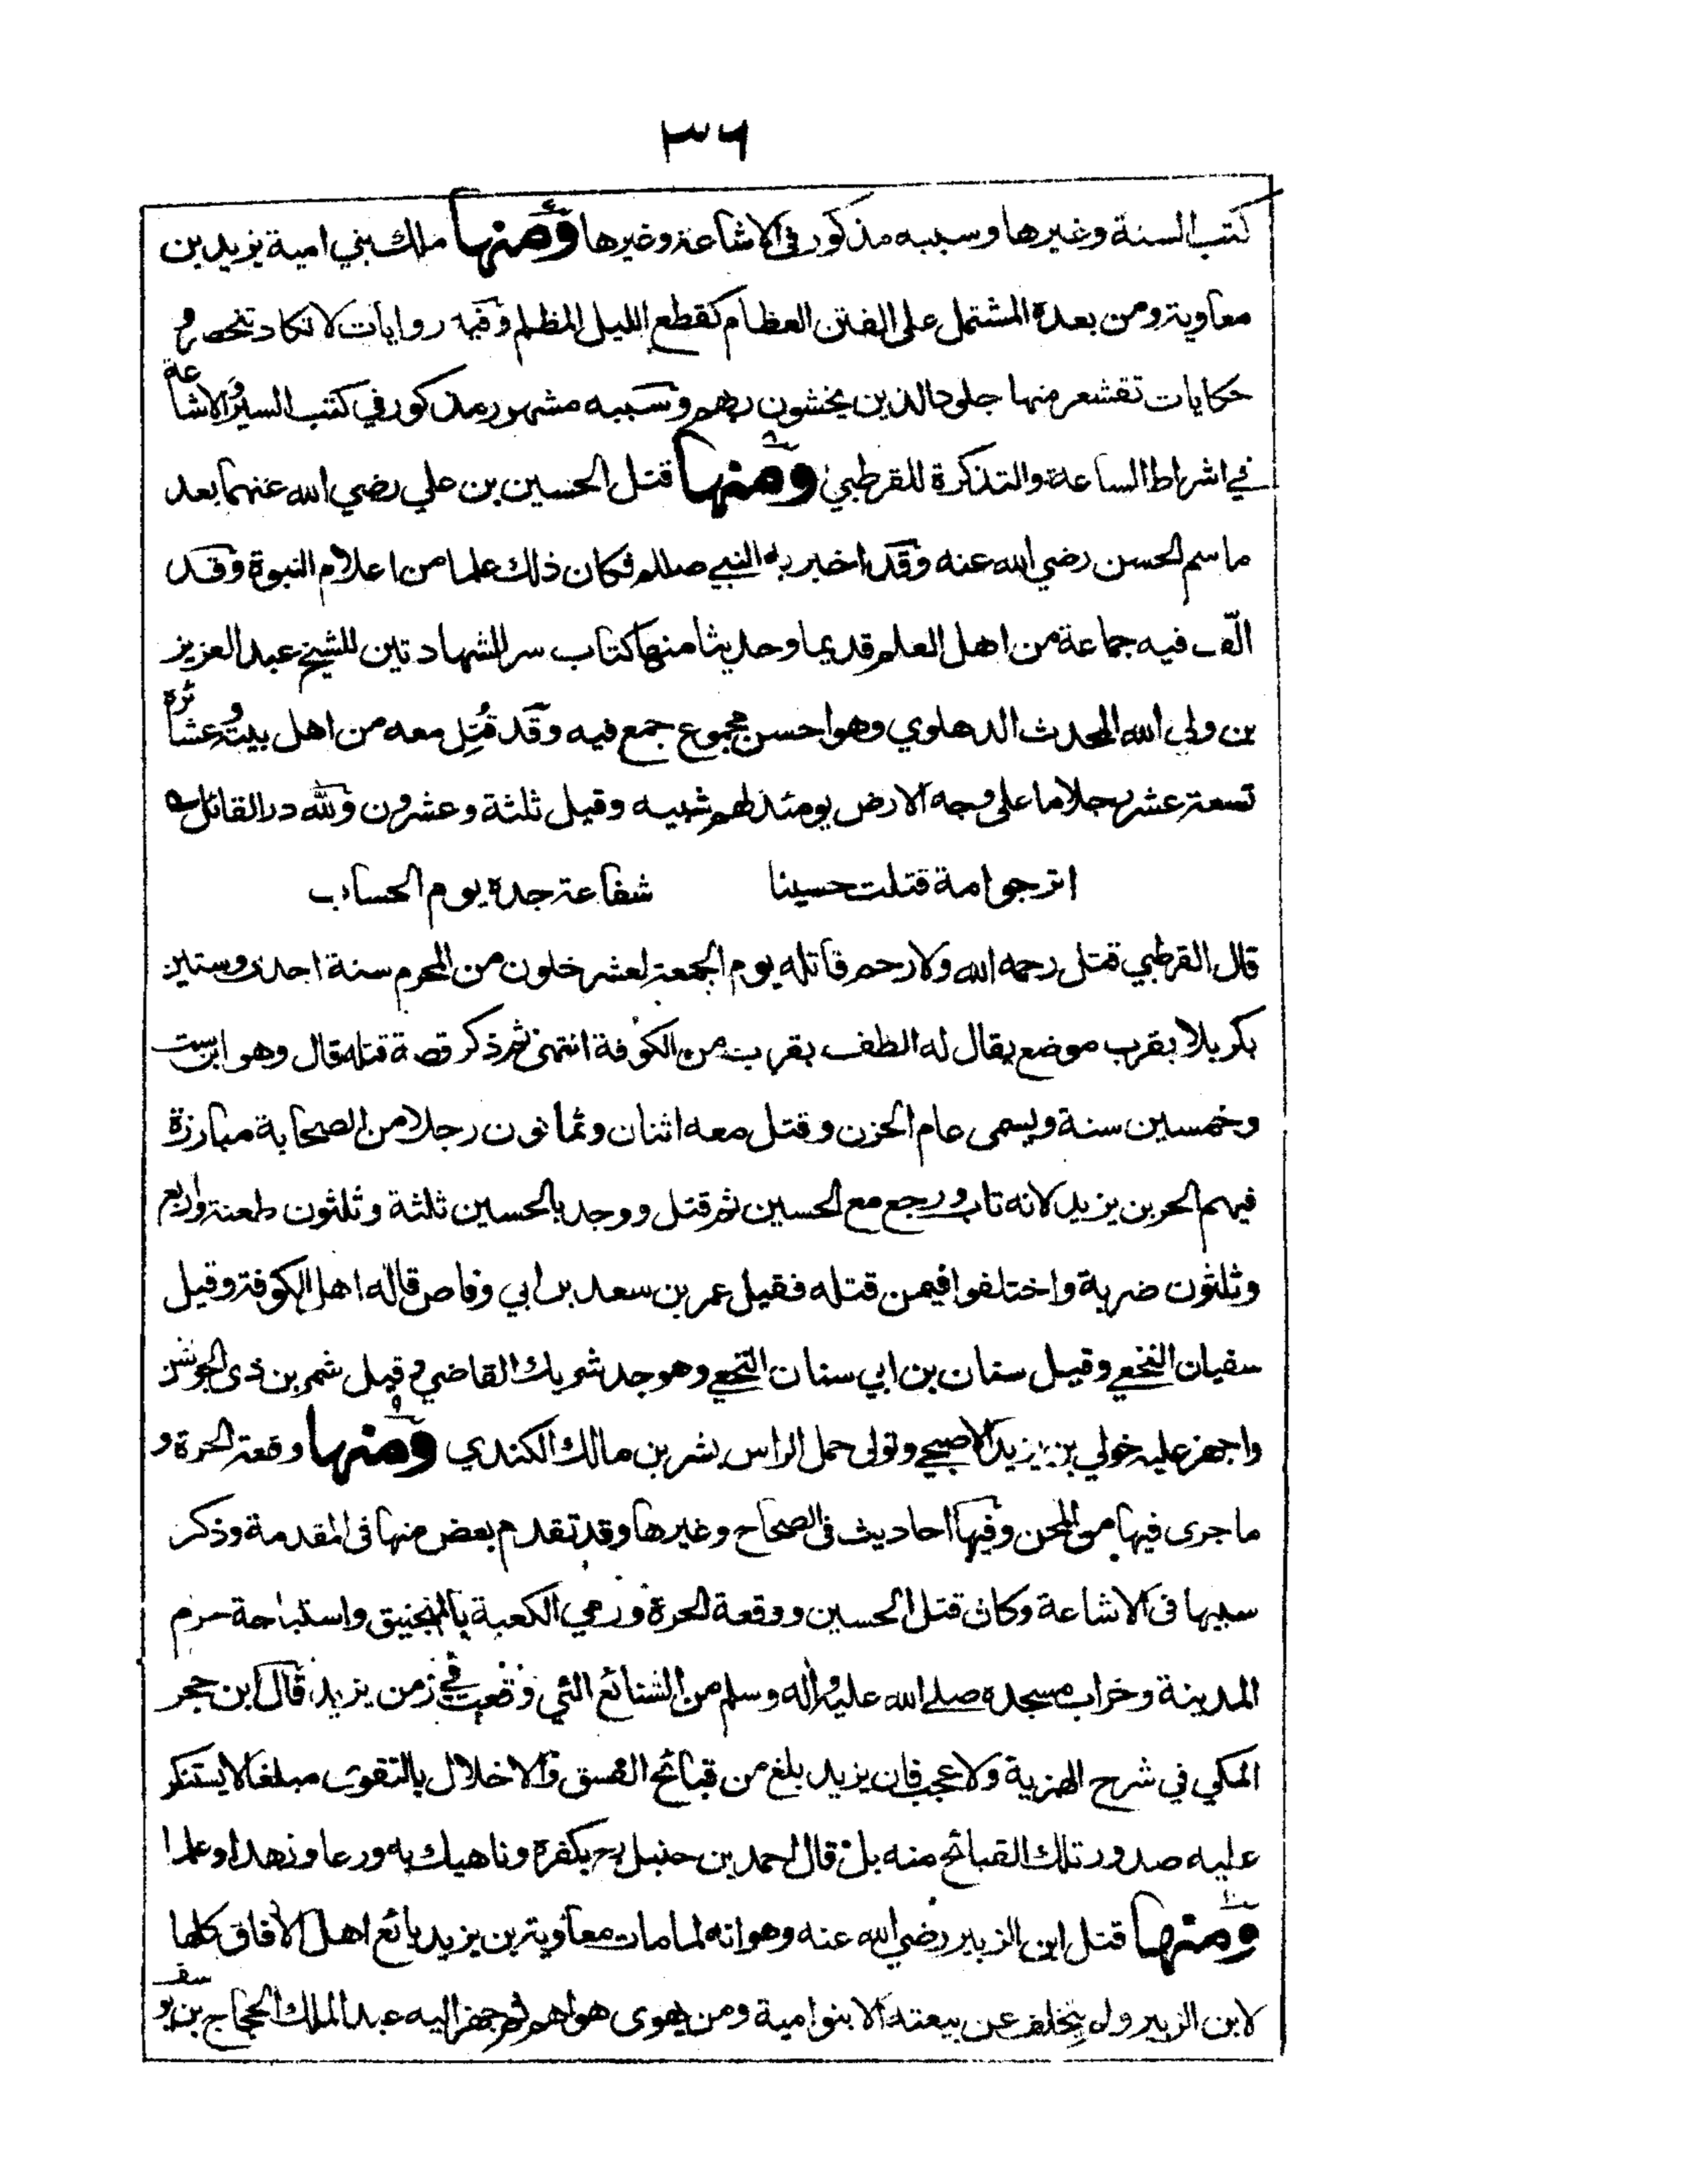 ٣٦
كتب السنة وغيرها وسببه مذكور في الاشاعة وغيرها ومنها ملك بني امية يزيد بن
معاوية ومن بعده المشتمل على الفتن العظام كقطع الليل المظلم وفيه روايات لا تكاد تنحصر و
حكايات تقشعر منها جلود الذين يخشون ربهم وسببه مشهور مذكور في كتب السير والاشاعة
في اشراط الساعة والتذكرة للقرطبي ومنها قتل الحسين بن علي رضي الله عنهما بعد
ما سم الحسن رضي الله عنه وقد اخبر به النبي صللم فكان ذلك علما من اعلام النبوة وقد
الّف فيه جماعة من اهل العلم قديما وحديثا منها كتاب سر الشهادتين للشيخ عبد العزيز
بن ولي الله المحدث الدهلوي وهو احسن مجموع جمع فيه وقد قُتِل معه من اهل بيته وعشائره
تسعة عشر رجلا ما على وجه الارض يومئذ لهم شبيه وقيل ثلثة وعشرون ولله در القائل
اترجوا امة قتلت حسينا شفاعة جده يوم الحساب
قال القرطبي قتل رحمه الله ولا رحم قاتله يوم الجمعة لعشر خلون من المحرم سنة احدى وستين
بكربلا بقرب موضع يقال له الطف بقرب من الكوفة انتهى ثم ذكر قصة قتله قال وهو ابن ست
وخمسين سنة ويسمى عام الحزن وقتل معه اثنان وثمانون رجلا من الصحابة مبارزة
فيهم الحر بن يزيد لانه تاب ورجع مع الحسين ثم قتل ووجد بالحسين ثلثة وثلثون طعنة واربع
وثلثون ضربة واختلفوا فيمن قتله فقيل عمر بن سعد بن ابي وقاص قاله اهل الكوفة وقيل
سفيان النخعي وقيل سنان بن ابي سنان النخعي وهو جد شريك القاضي وقيل شمر بن ذى الجوشن
واجهز عليه خولي بن يزيد الاصبحي وتولى حمل الراس بشر بن مالك الكندي ومنها وقعة الحرة و
ما جرى فيها من المحن وفيها احاديث في الصحاح وغيرها وقد تقدم بعض منها في المقدمة وذكر
سببها في الاشاعة وكان قتل الحسين ووقعة الحرة ورمي الكعبة بالمنجنيق واستباحة حرم
المدينة وخراب مسجده صلى الله عليه واله وسلم من الشنائع التي وقعت في زمن يزيد قال ابن حجر
المكي في شرح الهمزية ولا عجب فان يزيد بلغ من قبائح الفسق والاخلال بالتقوى مبلغا لا يستنكر
عليه صدور تلك القبائح منه بل قال احمد بن حنبل رح بكفره وناهيك به ورعا وزهدا وعلما
ومنها قتل ابن الزبير رضي الله عنه وهو انه لما مات معاوية بن يزيد بائع اهل الآفاق كلها
لابن الزبير ولم يتخلف عن بيعته الا بنو امية ومن يهوى هواهم ثم جهز اليه عبد الملك الحجاج بن يوسف